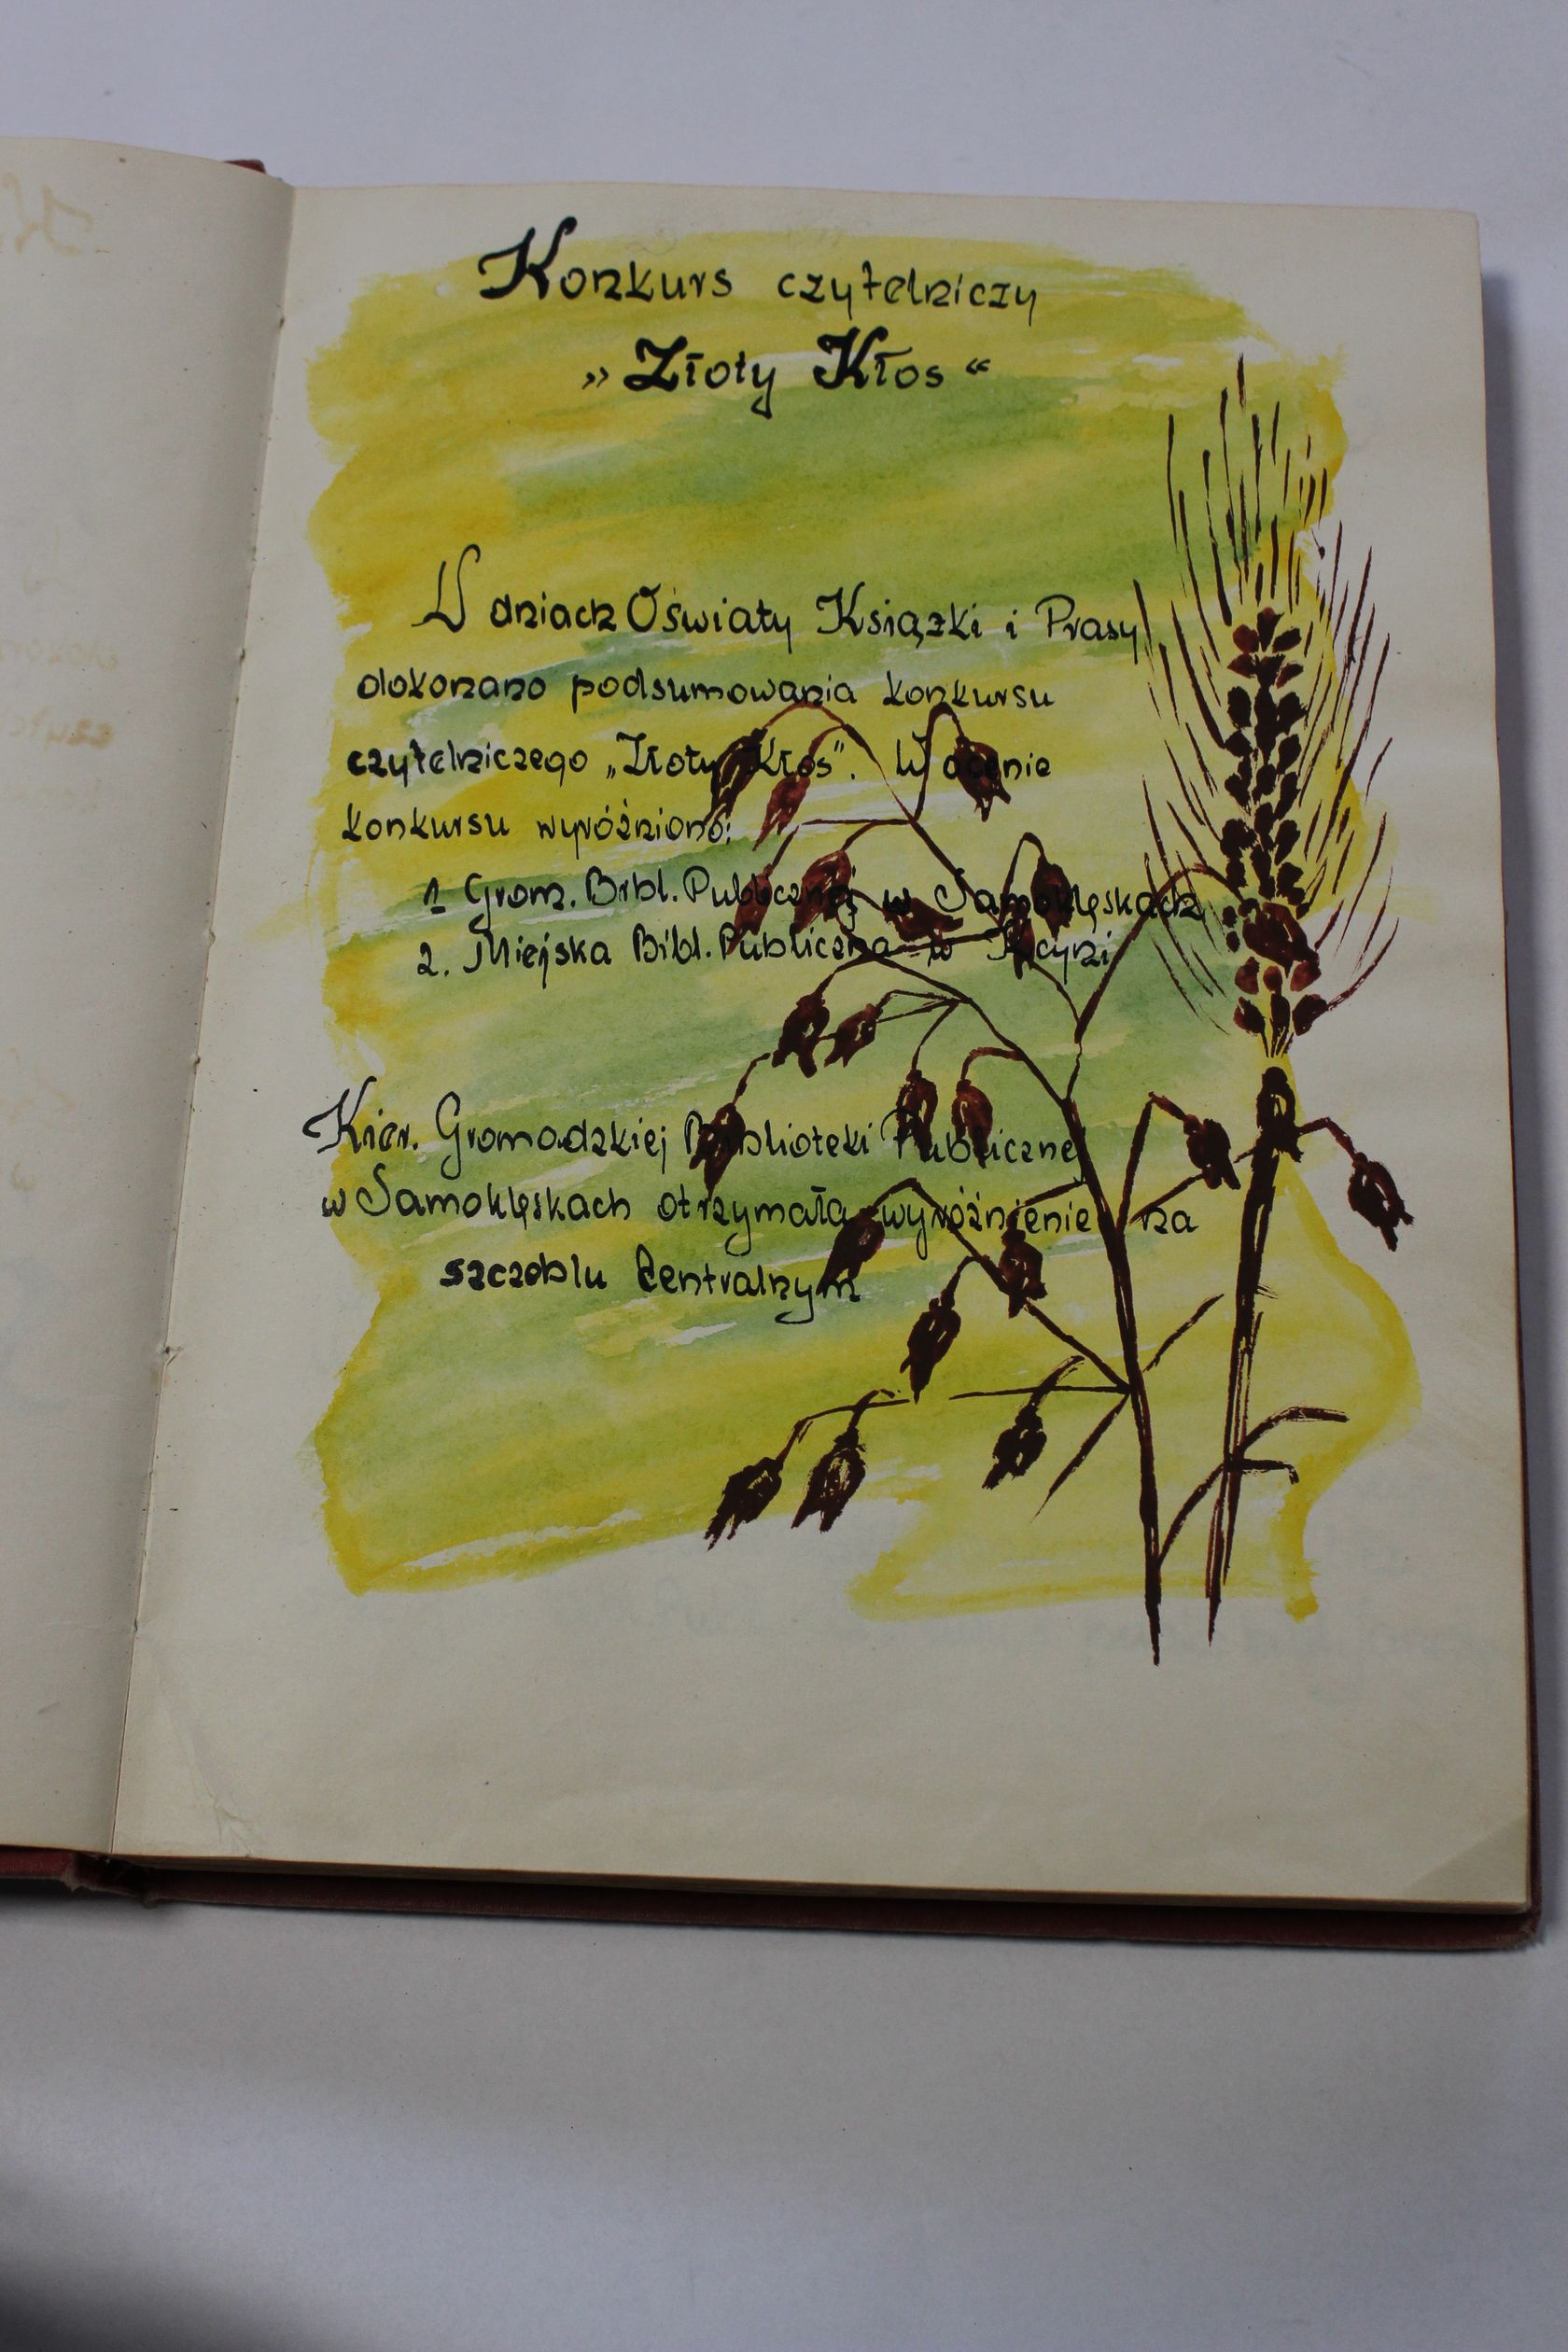 Konkurs czytelniczy
„Złoty Kłos“
W dniach Oświaty Książki i Prasy
dokonano podsumowania konkursu
czytelniczego „Złoty Kłos". W ocenie
konkursu wyróżniono:
1. Grom. Bibl. Publicznej w Samoklęskach
2. Miejska Bibl. Publiczna w Kcyni
Kier. Gromadzkiej Biblioteki Publicznej
w Samoklęskach otrzymała wyróżnienie na
szczeblu Centralnym